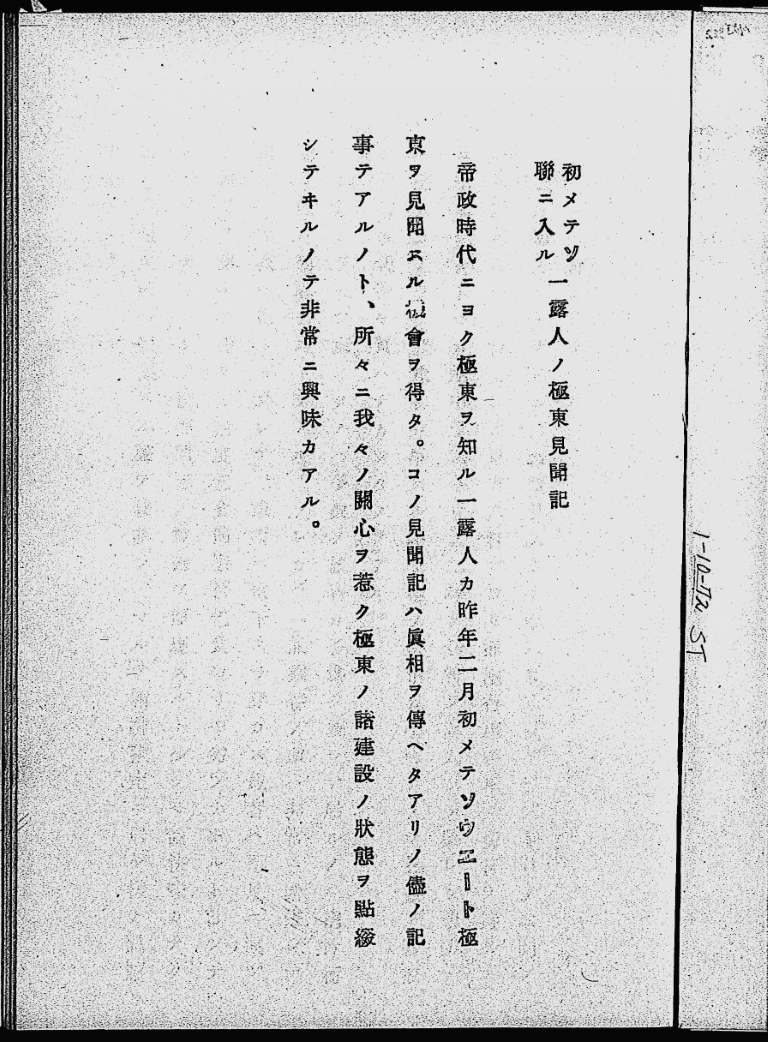 初メテソ
聯ニ入ル
一露人ノ極東見聞記
帝政時代ニヨク極東ヲ知ル一露人カ昨年二月初メテソウエート極
東ヲ見聞スル機會ヲ得タ。コノ見聞記ハ眞相ヲ傳ヘタアリノ儘ノ記
事テアルノト、所々ニ我々ノ關心ヲ惹ク極東ノ諸建設ノ狀態ヲ點綴
シテヰルノテ非常ニ興味カアル。
1-10-52 ST